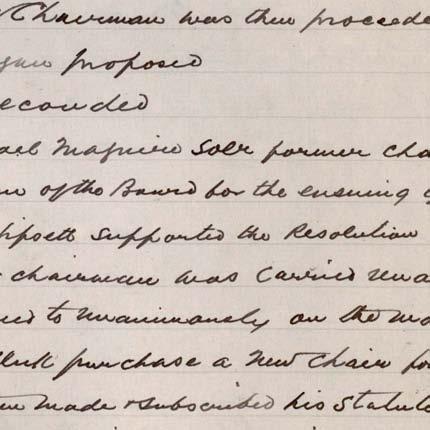 Chairman was then proceede
proposed
econded
ael Maguire Solr former cha
of the Board for the ensuing y
supported the Resolution
chairman was carried una
to unanimously on the mo
purchase a new chair fo
made & subscribed his Statuto